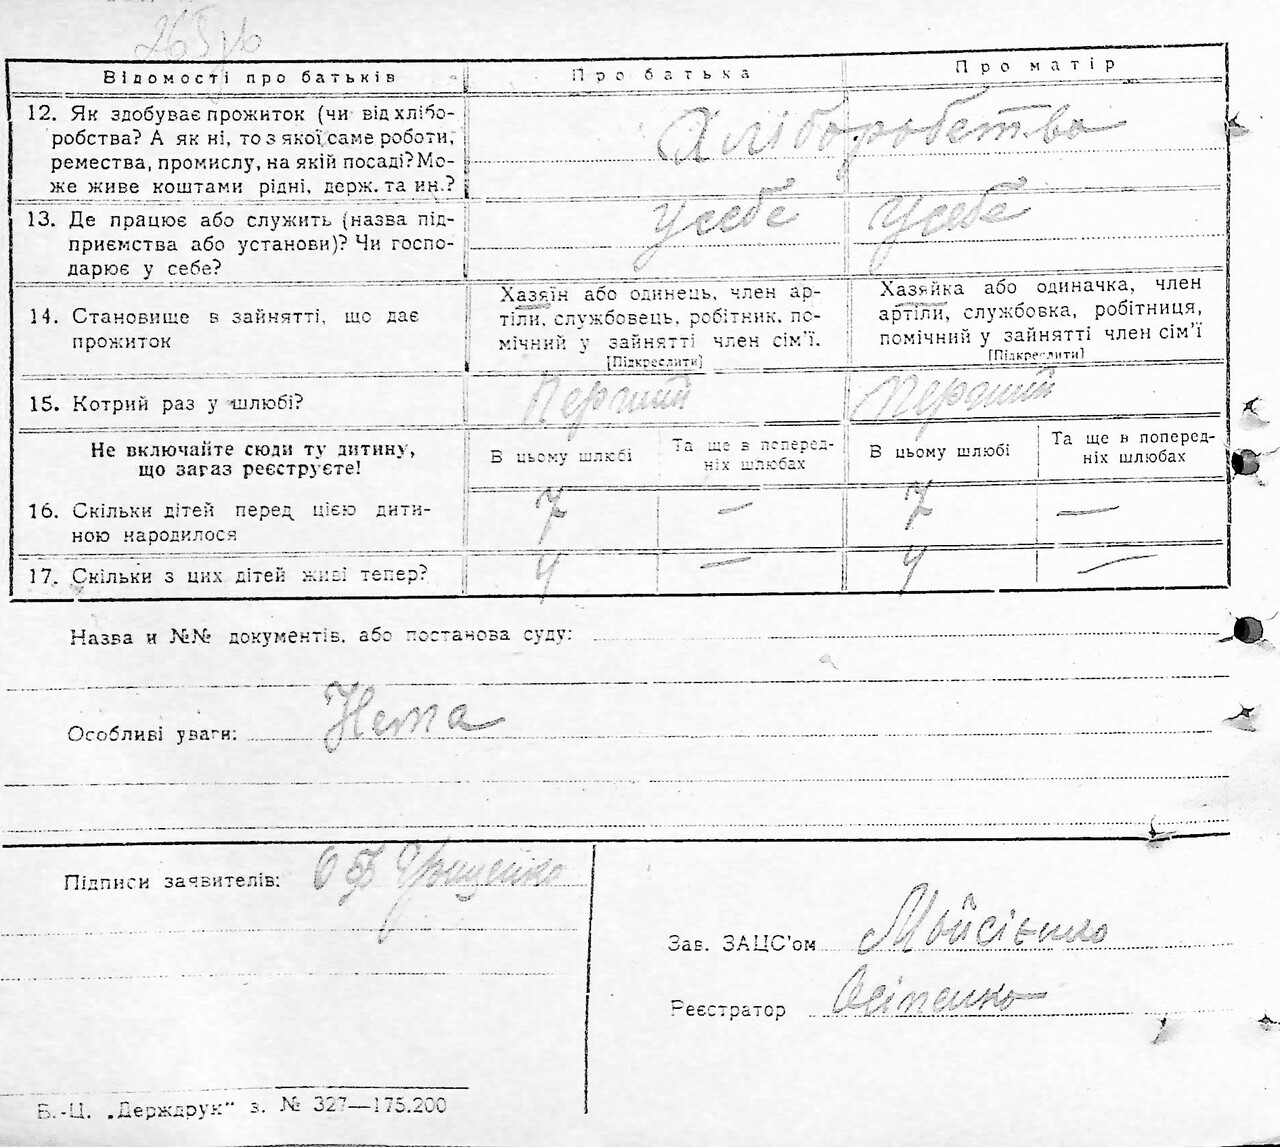 Відомості про батьків Про батька Про матір
12. Як здобуває прожиток (чи від хлібо-
робства? А як ні, то з якої саме роботи,
ремества, промислу, на якій посаді? Мо-
же живе коштами рідні, держ. та ин.?
Хліборобство
13. Де працює або служить (назва під-
приємства або установи)? Чи госпо-
дарює у себе?
у себе у себе
14. Становище в зайнятті, що дає
прожиток
Хазяїн або одинець, член ар-
тіли, службовець, робітник, по-
мічний у зайнятті член сім'ї.
[Підкреслити]
Хазяйка або одиначка, член
артіли, службовка, робітниця,
помічний у зайнятті член сім'ї
[Підкреслити]
15. Котрий раз у шлюбі? Перший Перший
Не включайте сюди ту дитину,
що зараз реєструєте!
В цьому шлюбі
Та ще в поперед-
ніх шлюбах
В цьому шлюбі
Та ще в поперед-
ніх шлюбах
16. Скільки дітей перед цією дити-
ною народилося
7 — 7 —
17. Скільки з цих дітей живі тепер? 4 — 4 —
Назва и №№ документів, або постанова суду:
Особливі уваги: Нема
Підписи заявителів: Грищенко
Зав. ЗАЦС'ом Мойсієнко
Реєстратор Осіпенко
Б.-Ц. „Держдрук" з. № 327—175.200